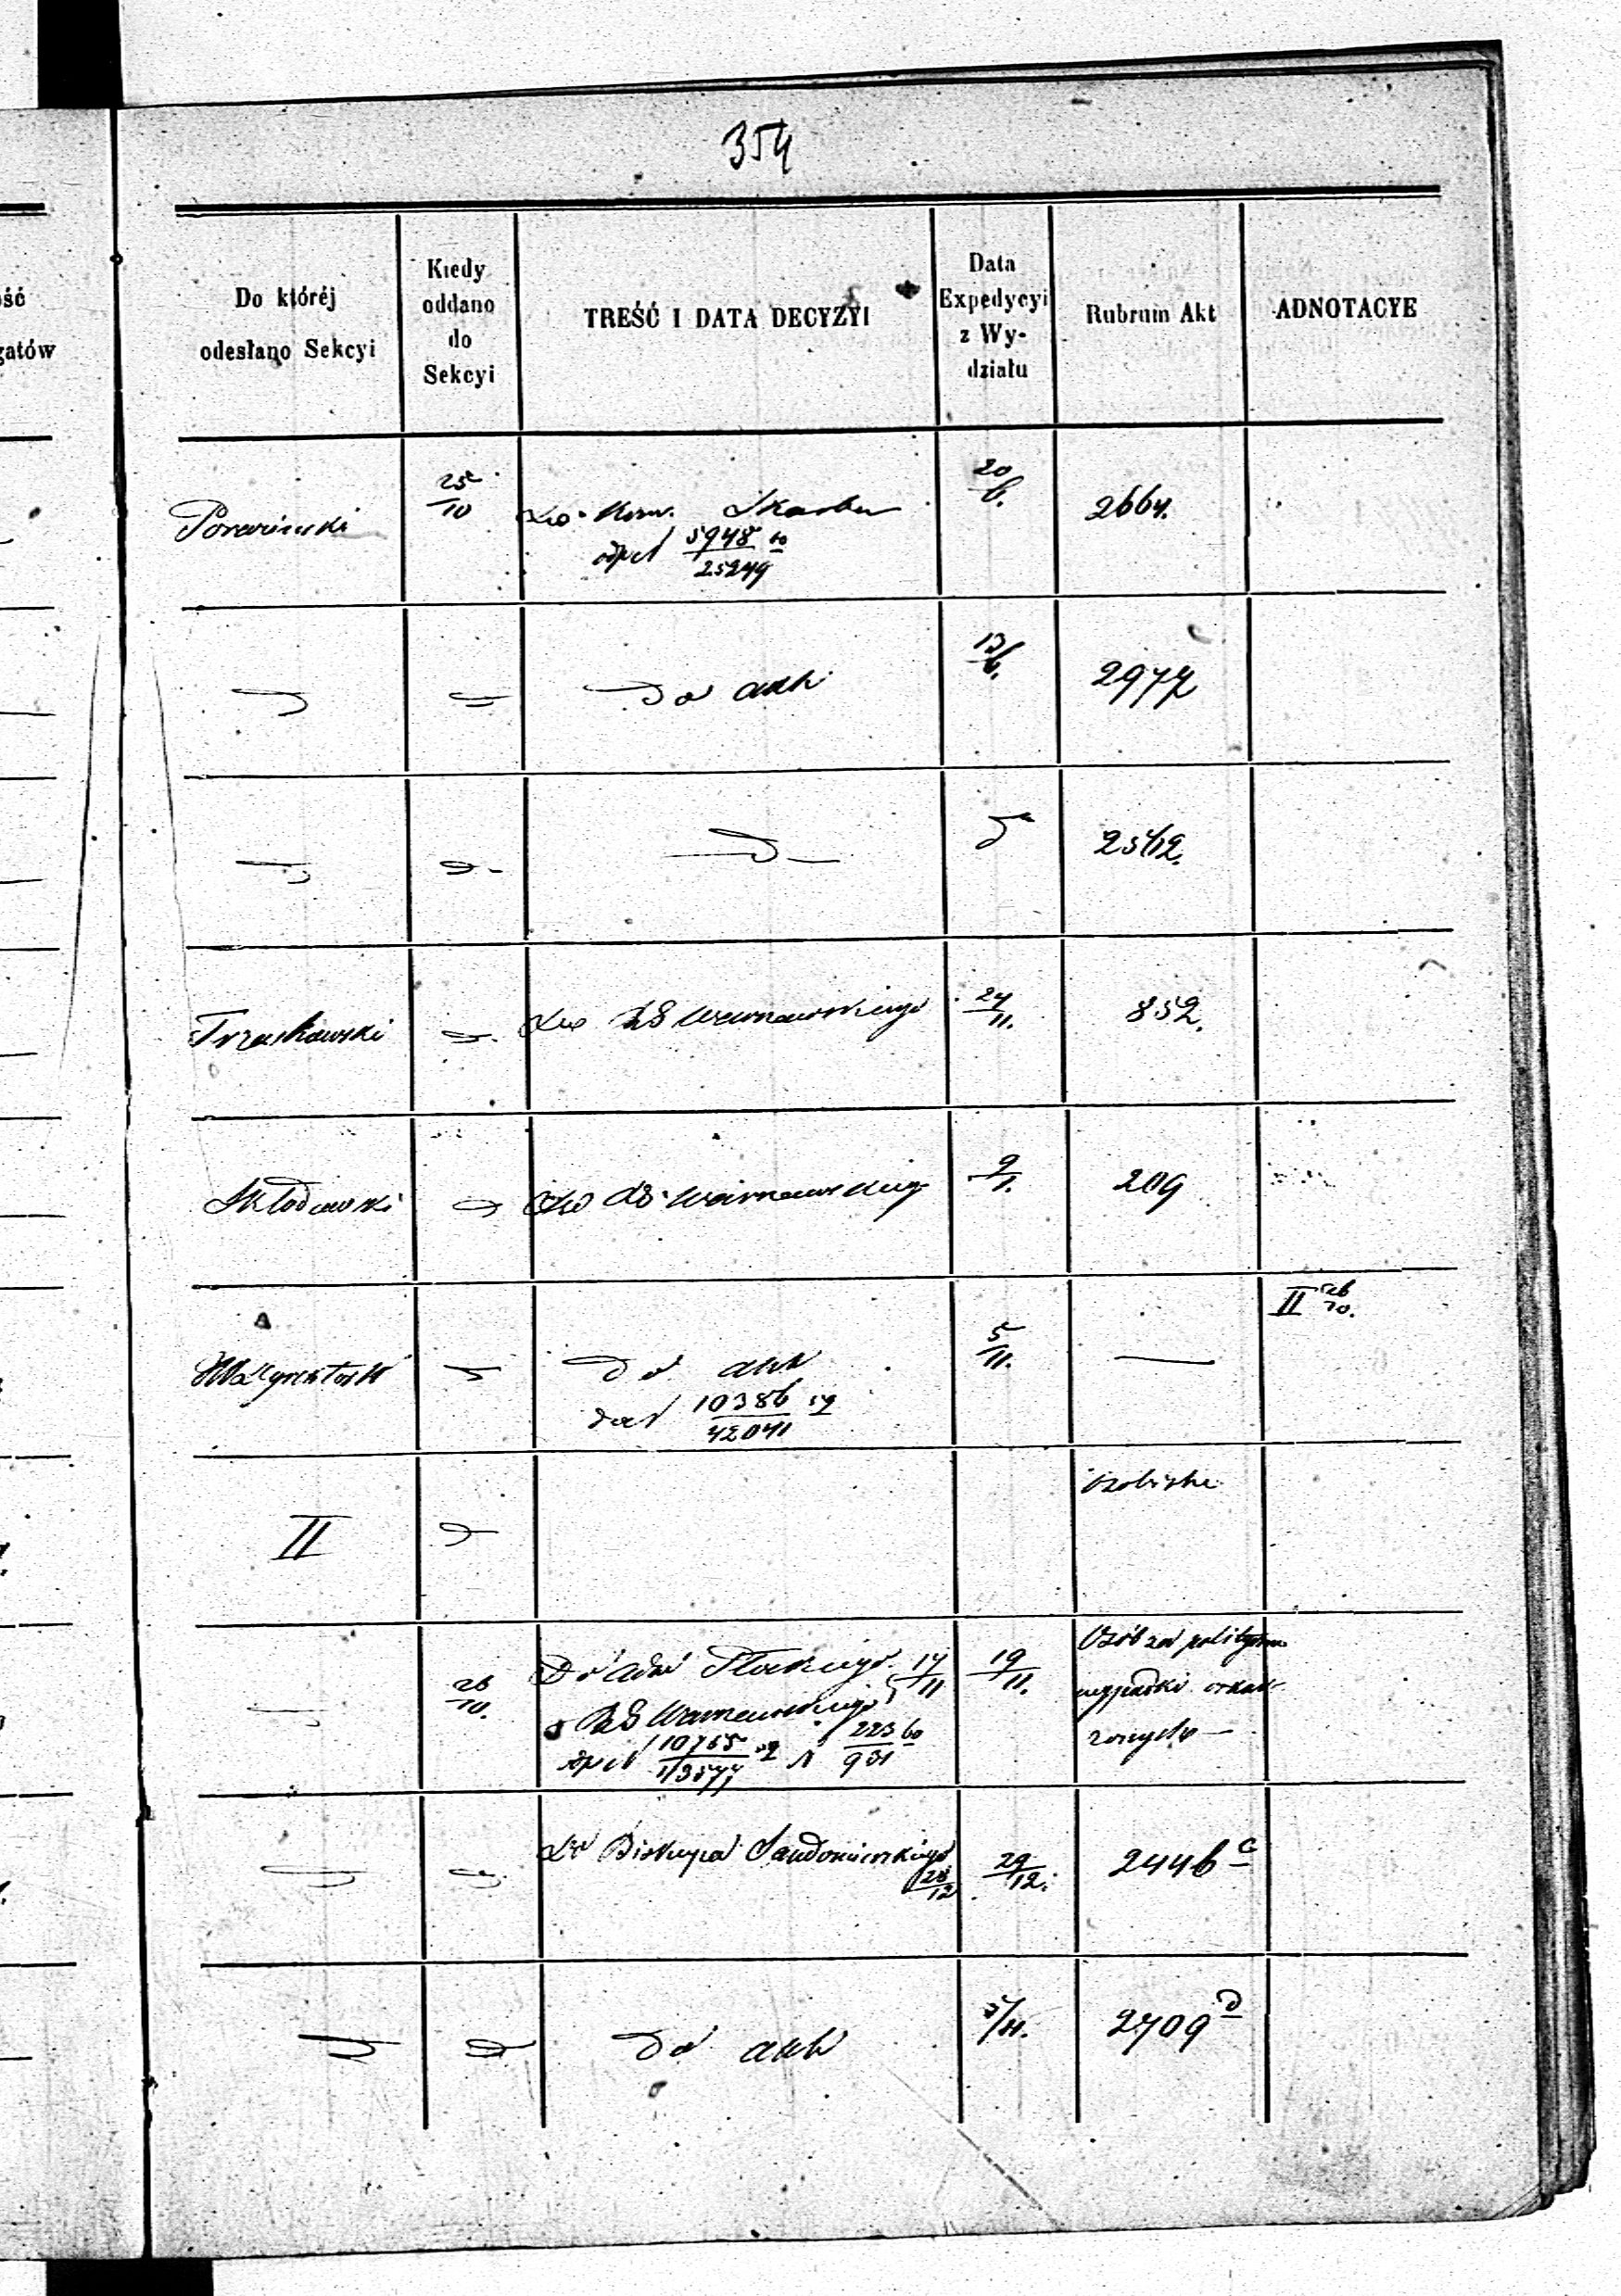 354
ść
gatów
Do któréj
odesłano Sekcyi
Kiedy
oddano
do
Sekcyi
TREŚĆ I DATA DECYZYI
Data
Expedycyi
z Wy-
działu
Rubrum Akt
ADNOTACYE
25/10
Do Kom. Skarbu
5948/25249 60
20/6.
2664.
Do akt
13/6.
2977
2542.
Trzaskowski
Do RG Warszawskiego
24/11.
852.
Skłodowski
Do RG Warszawskiego
9/1.
209
Do akt
10386/42041 59
5/11.
—
II 26/10.
II
Osobiste
26/10.
Do Adm Płockiego 17/11
RG Warszawskiego
10765/43577 59 N 223/931 60
19/11.
Osób za polityczne
wypadki oskar-
zonych —
Do Biskupa Sandomirskiego
28/12
29/12.
2446 c
Do akt
5/11.
2709 D